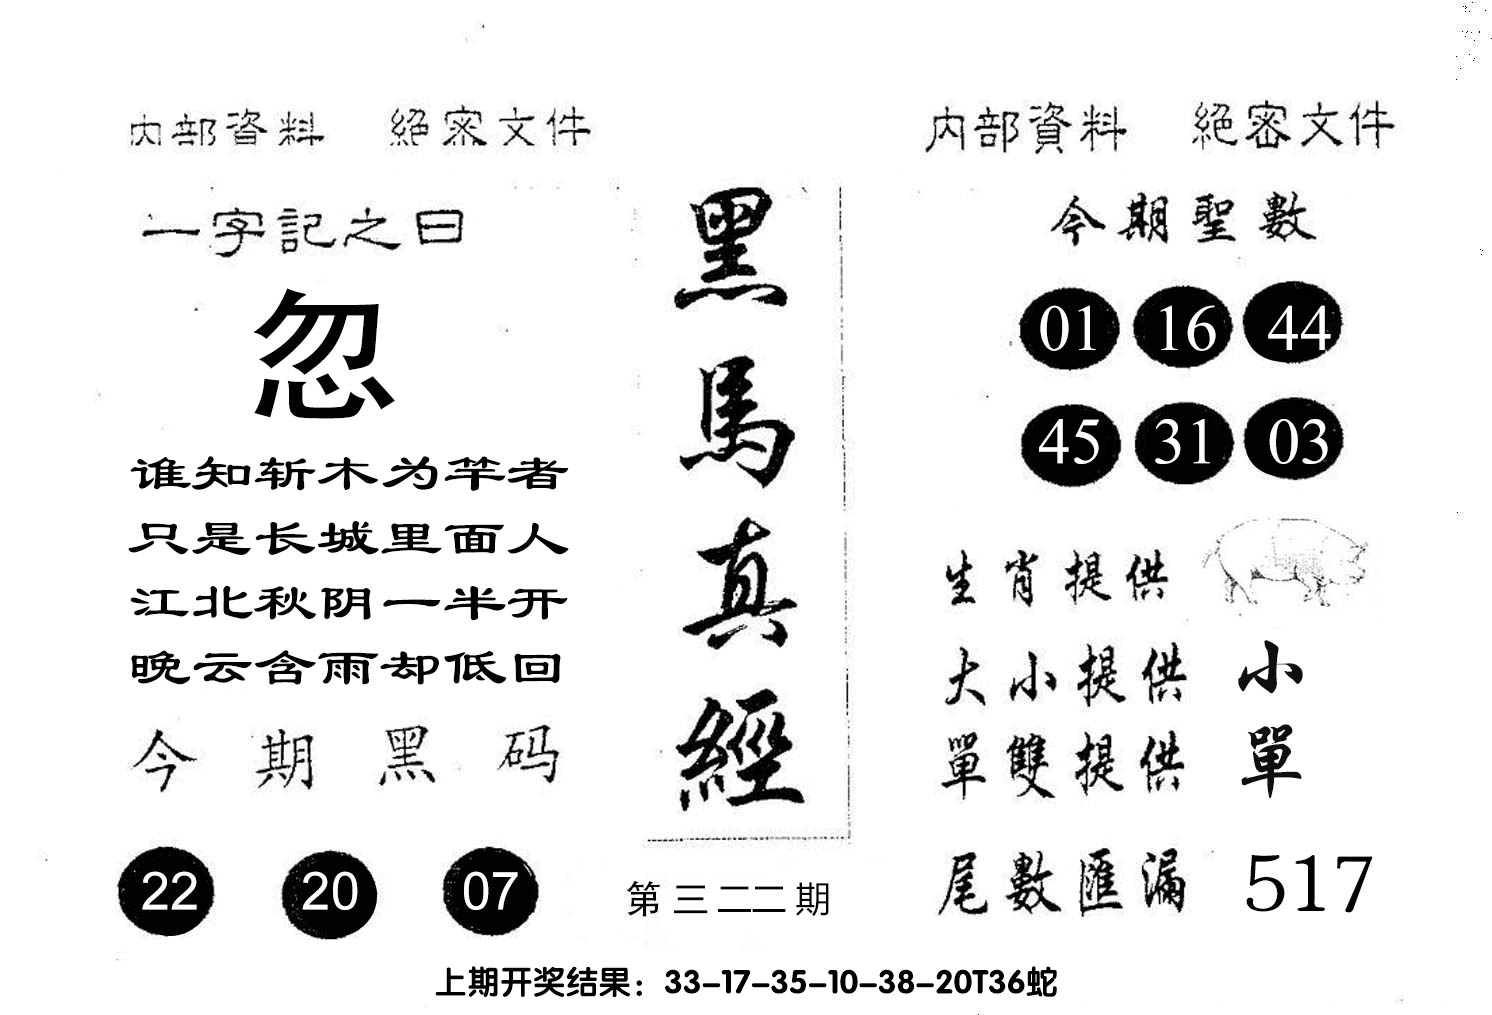 内部資料 絕密文件
一字記之曰
忽
谁知斩木为竿者
只是长城里面人
江北秋阴一半开
晚云含雨却低回
今期黑码
22 20 07
黑馬真經
第三二二期
内部資料 絕密文件
今期聖數
01 16 44
45 31 03
生肖提供
大小提供 小
單雙提供 單
尾數匯漏 517
上期开奖结果：33-17-35-10-38-20T36蛇